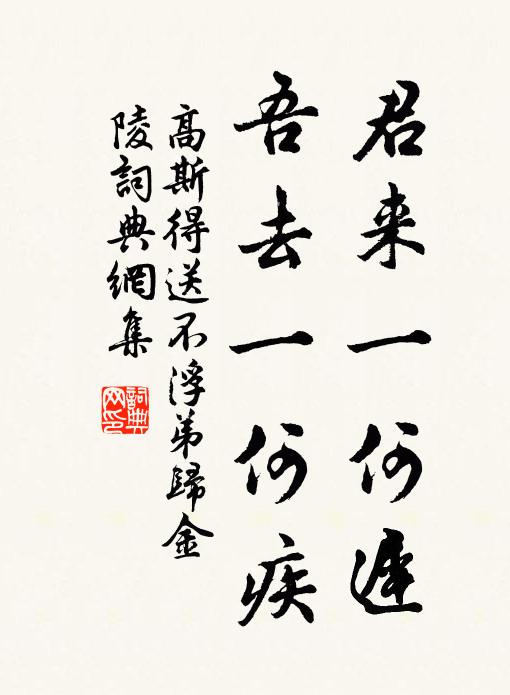 君来一何遲
吾去一何疾
高斯得送不浮弟歸金
陵詞典網集
詞典
网印